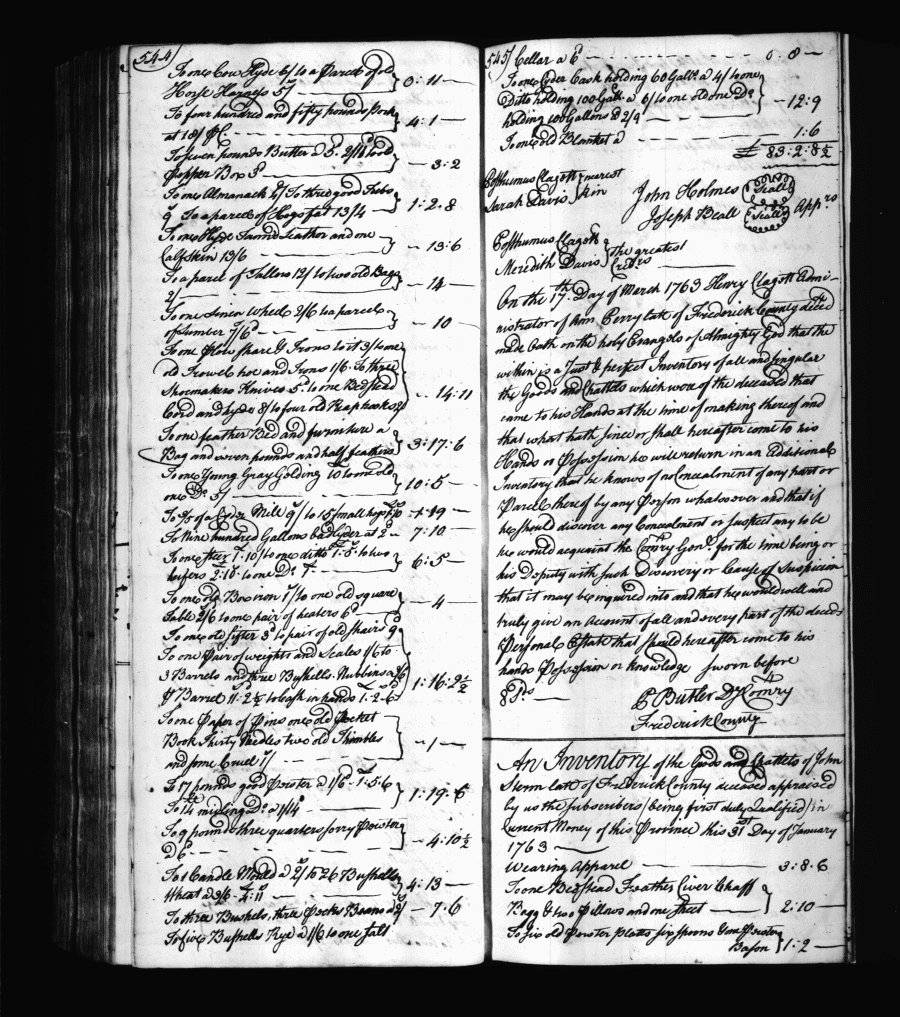 544
To one Cow Hyde 6/ to a Parcel of old
Horse Harness 5/ 0:11
To four hundred and fifty pounds Pork
at 18/ 4:1
To seven pounds Butter a 5. 2/11 to old
Pepper Box 3d 3:2
To one Almanack 4/ To three good
9 To a parcel of Hogs fat 13/4 1:2:8
To one Hyde Tannd Leather and one
Calf skin 13/6 13:6
To a parcel of Tallow 12/ to two old Bags
2/ 14
To one Linen Wheel 2/6 to a parcel
of Lumber 7/6d 10
To one Plow share & Irons to it 3/ to one
old Trowel hoe and Irons 1/6 To three
Shoemakers Knives 5d to one Bedstead
Cord and hyde 8/ to four old Reaphooks 14:11
To one feather Bed and furniture a
Bag and seven pounds and half feathers 3:17:6
To one Young Gray Gelding to one old
one Do 5/ 10:5
To 3/5 of a Cyder Mill 9/ to 15 small hogs 1:19
To Nine hundred Gallons bad Cyder at 2 7:10
To one steer 1:10/ to one ditto 1:5 to two
heifers 2:10 to one Do 6:5
To one old Box iron 1/ to one old square
Table 2/6 to one pair of heaters 6d 4
To one old sifter 3d to pair of old stairs 9d
To one Pair of weights and Scales 1/6 to
3 Barrels and three Bushells Nubbins a 7/6
P Barrel 1:2½ to Cash in hands 1:2:6 1:16:2½
To one Paper of Pins one old Pocket
Book Thirty Needles two old Thimbles
and some Cruel 1/ 1
To 17 pounds good Pewter a 1/6 1:5:6
To 14 midling Do a 1/ 14 1:19:6
To 9 pound three quarters sorry Pewter
a 6d 4:10½
To 1 Candle Mould a 2/ to 26 Bushells
Wheat a 3/6 4:11 4:13
To three Bushels, three Pecks Beans a 2/ 7:6
To five Bushells Rye a 1/6 to one Salt
545 Cellar a 6d 0:8
To one Cyder Cask holding 60 Galls. a 4/ to one
Ditto holding 100 Galls. a 6/ to one old one Do
holding 100 Gallons a 2/9 12:9
To one old Blanket a 1:6
£ 83:2:8½
Posthumus Clagett nearest
Sarah Davis kin
John Holmes Seal
Joseph Beall Seal Apprs
Posthumus Clagett
Meredith Davis the greatest
Credrs
On the 17th. Day of March 1763 Henry Clagett Admi-
nistrator of Perry late of Frederick County deced
made Oath on the holy Evangels of Almighty God that the
within is a Just & perfect Inventory of all and Singular
the Goods and Chattels which were of the deceased that
came to his Hands at the time of making thereof and
that what hath since or shall hereafter come to his
Hands or Possession he will return in an additional
Inventory that he knows of no Concealment of any part or
Parcel thereof by any Person whatsoever and that if
he should discover any Concealment or suspect any to be
he would acquaint the Comry Genl. for the time being or
his Deputy with such Discovery or Cause of Suspicion
that it may be inquired into and that he would well and
truly give an Account of all and every part of the deceds
Personal Estate that should hereafter come to his
hands Possession or Knowledge Sworn before
P Butler Dy Comry
Frederick County
An Inventory of the Goods and Chattels of John
Sterm late of Frederick County deceased appraised
by us the subscribers (being first duly Qualified) in
Current Money of this Province this 31st Day of January
1763
Wearing Apparel 3:8:6
To one Bedstead Feather Civer Chaff
Bagg & two Pillows and one sheet 2:10
To six old Pewter plates six spoons One Pewter
Bason 1:2